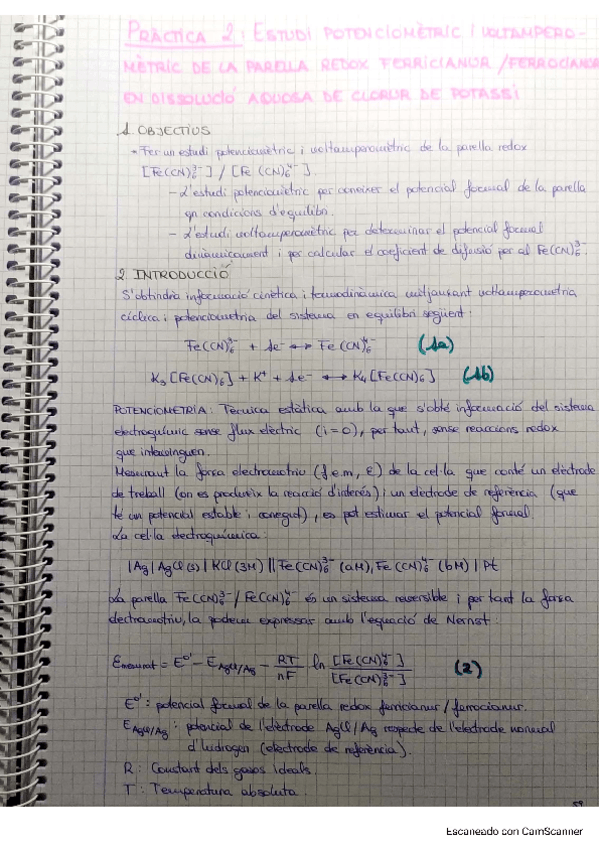 PRÀCTICA 2: ESTUDI POTENCIOMÈTRIC I VOLTAMPERO-
MÈTRIC DE LA PARELLA REDOX FERRICIANUR /FERROCIANUR
EN DISSOLUCIÓ AQUOSA DE CLORUR DE POTASSI
1. OBJECTIUS
- Fer un estudi potenciomètric i voltamperomètric de la parella redox
[Fe(CN)₆³⁻] / [Fe(CN)₆⁴⁻].
- L'estudi potenciomètric per conèixer el potencial formal de la parella
en condicions d'equilibri.
- L'estudi voltamperomètric per determinar el potencial formal
dinàmicament i per calcular el coeficient de difusió per al Fe(CN)₆³⁻.
2. INTRODUCCIÓ
S'obtindrà informació cinètica i termodinàmica mitjançant voltamperometria
cíclica i potenciometria del sistema en equilibri següent:
Fe(CN)₆³⁻ + 1e⁻ ↔ Fe(CN)₆⁴⁻ (1a)
K₃[Fe(CN)₆] + K⁺ + 1e⁻ ↔ K₄[Fe(CN)₆] (1b)
POTENCIOMETRIA: Tècnica estàtica amb la que s'obté informació del sistema
electroquímic sense flux elèctric (i=0), per tant, sense reaccions redox
que intervinguen.
Mesurant la força electromotriu (f.e.m, ε) de la cel·la que conté un elèctrode
de treball (on es produirix la reacció d'interés) i un elèctrode de referència (que
té un potencial estable i conegut), es pot estimar el potencial formal.
La cel·la electroquímica:
|Ag|AgCl(s)|KCl(3M)||Fe(CN)₆³⁻(aM),Fe(CN)₆⁴⁻(bM)|Pt
La parella Fe(CN)₆³⁻/Fe(CN)₆⁴⁻ és un sistema reversible i per tant la força
electromotriu, la podem expressar amb l'equació de Nernst:
Emesurat = E⁰' - EAgCl/Ag - RT/nF ln [Fe(CN)₆⁴⁻]/[Fe(CN)₆³⁻] (2)
E⁰': potencial formal de la parella redox ferricianur/ferrocianur.
EAgCl/Ag: potencial de l'elèctrode AgCl/Ag respecte de l'elèctrode normal
d'hidrogen (elèctrode de referència).
R: Constant dels gasos ideals.
T: Temperatura absoluta.
59
Escaneado con CamScanner